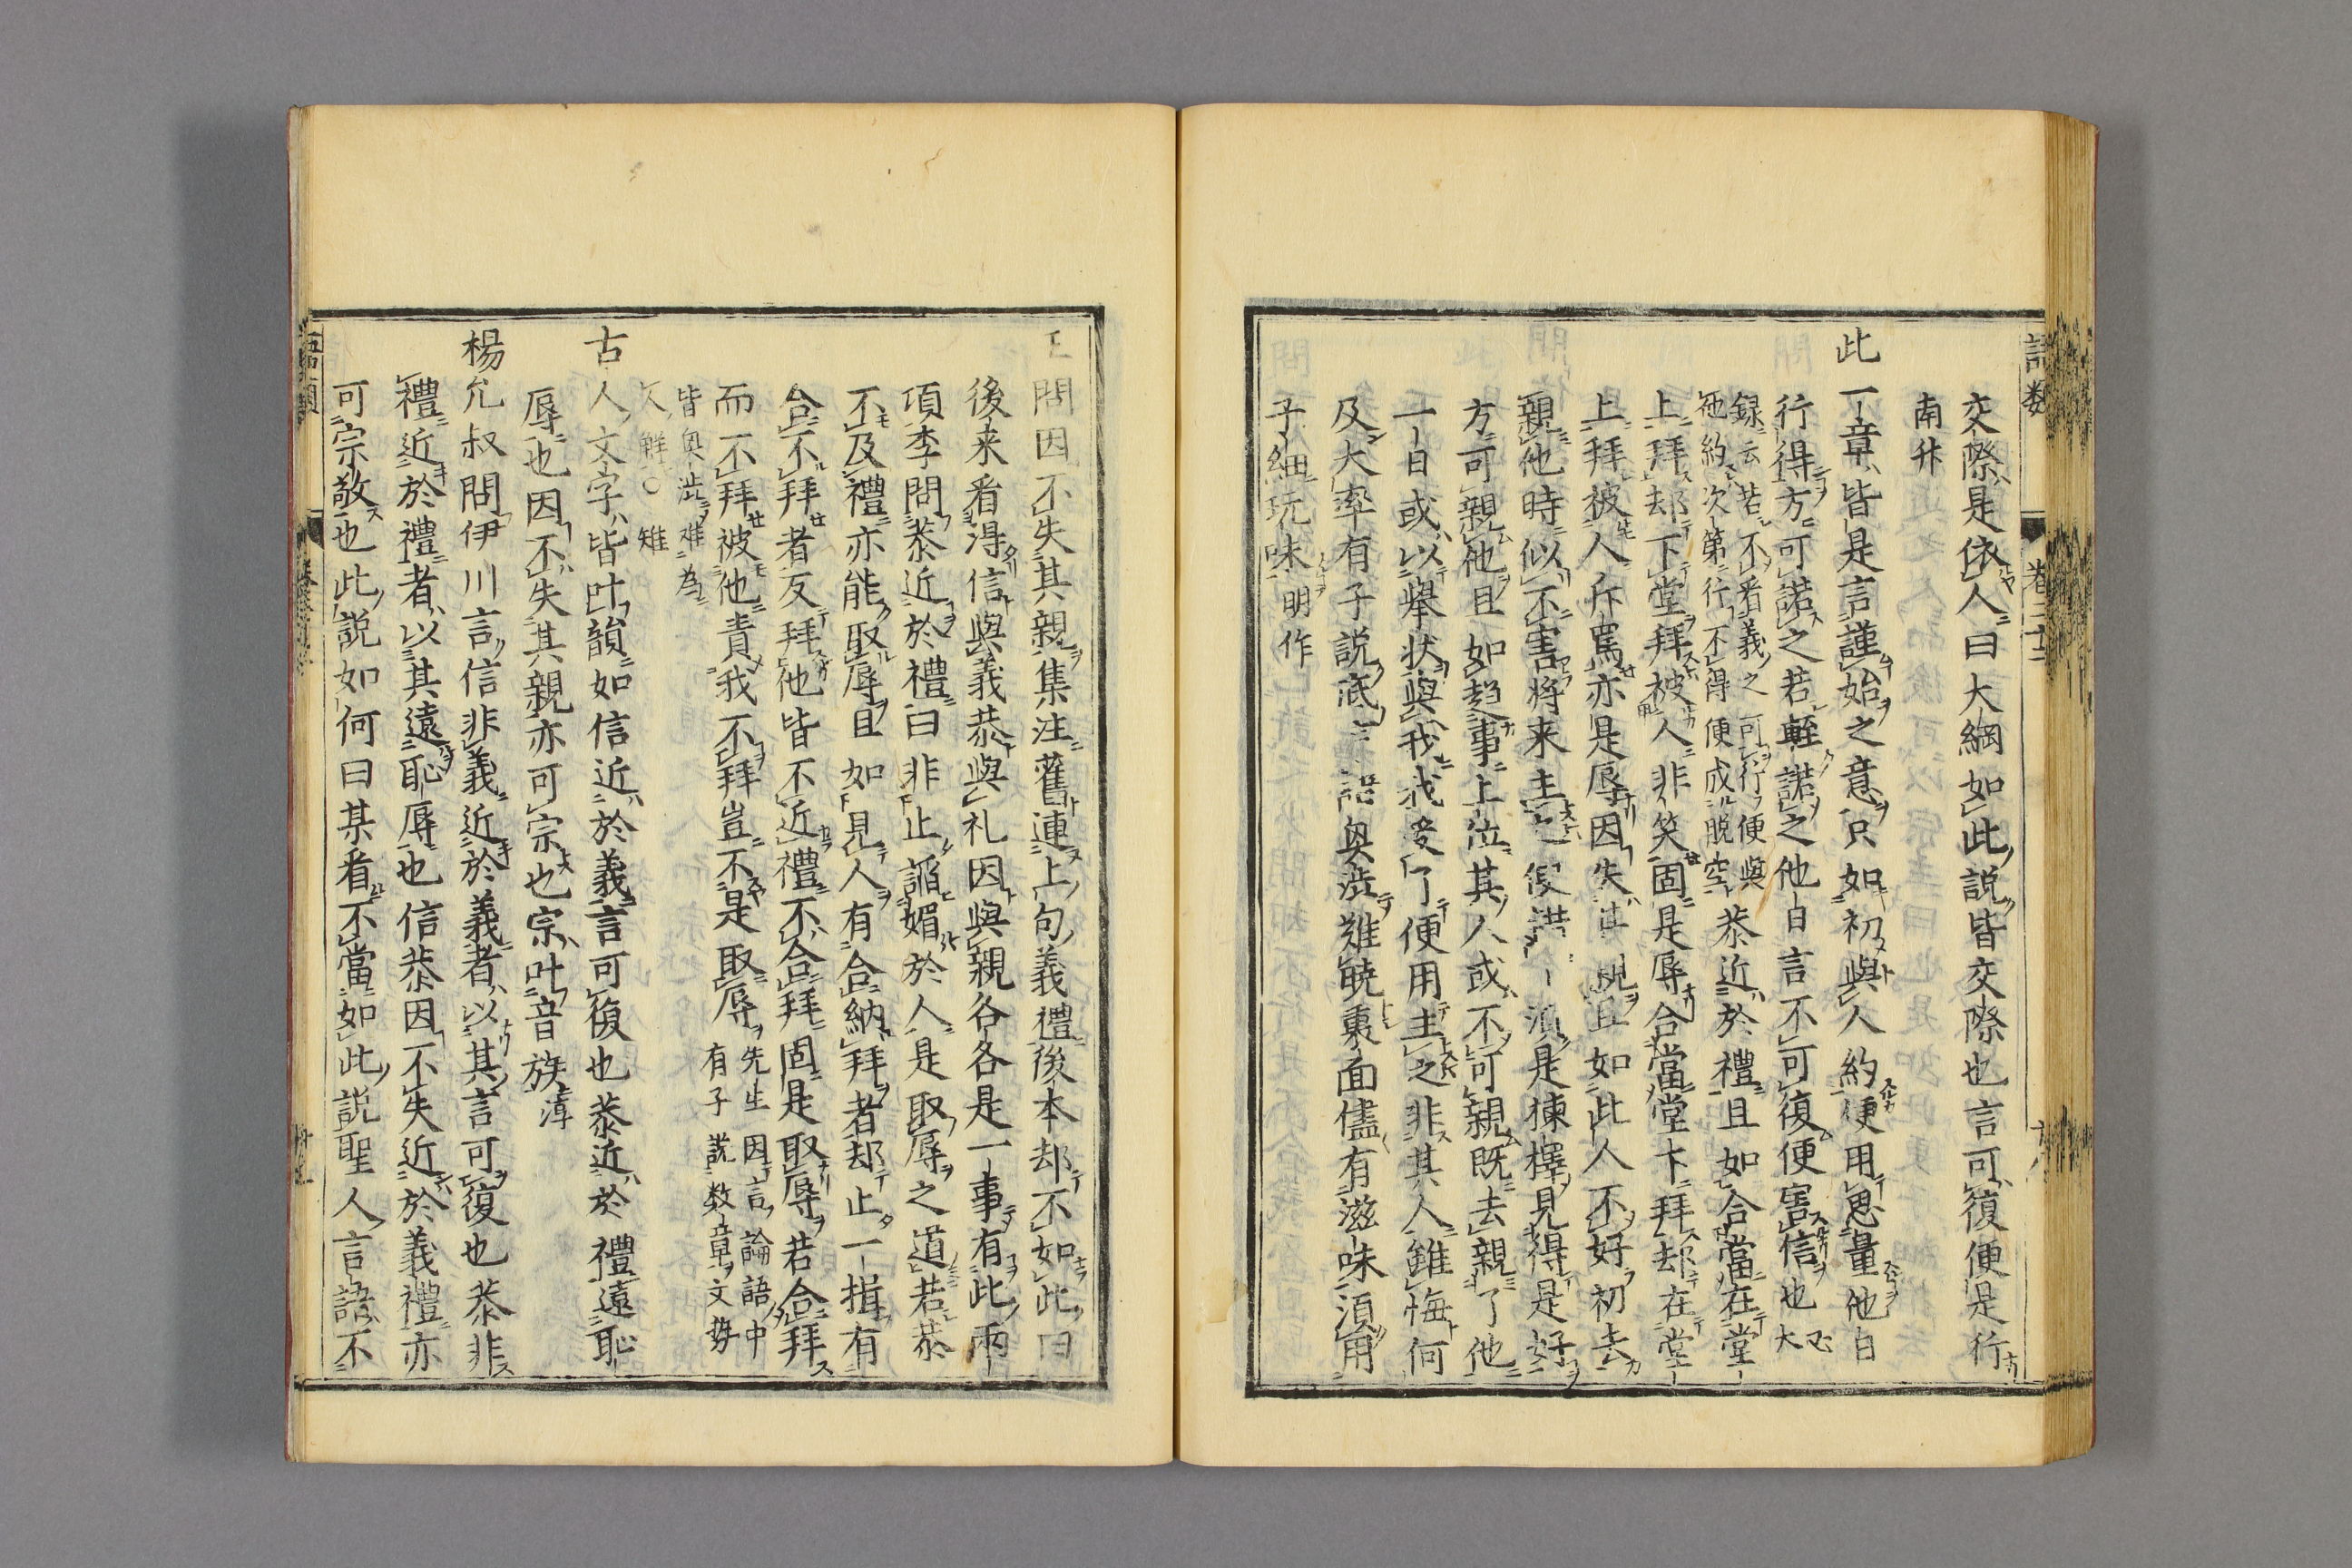 語類
卷二十二
交際是依人曰大綱如此說皆交際也言可復便是行
南升
此一章皆是言謹始之意只如初與人約便用思量他日
行得方可諾之若輕諾之他日言不可復便害信也必大
錄云若不看義之可行便與
他約次第行不得便成脫空
恭近於禮且如合當在堂
上拜却下堂拜被人非笑固是辱合當堂下拜却在堂
上拜被人斥罵亦是辱因失其親且如此人不好初去
親他時似不害將来主之便錯須是揀擇見得是好
方可親他且如趨事上位其人或不可親既去親了他
一日或以擧狀與我我受了便用主之非其人雖悔何
及大率有子說底言語奥澁難曉裏面儘有滋味須用
子細玩味明作
王問因不失其親集注舊連上句義禮後本却不如此曰
後来看得信與義恭與礼因與親各各是一事有此兩
項李問恭近於禮曰非止謟媚於人是取辱之道若恭
不及禮亦能取辱且如見人有合納拜者却止一揖有
合不拜者反拜他皆不近禮不合拜固是取辱若合拜
而不拜被他責我不拜豈不是取辱
先生因言論語中
有子說数章文勢
皆奥澁难為
人解〇雉
古人文字皆叶韻如信近於義言可復也恭近於禮遠恥
辱也因不失其親亦可宗也宗叶音族淳
楊允叔問伊川言信非義近於義者以其言可復也恭非
禮近於禮者以其遠恥辱也信恭因不失近於義禮亦
可宗敬也此說如何曰某看不當如此說聖人言語不
語類